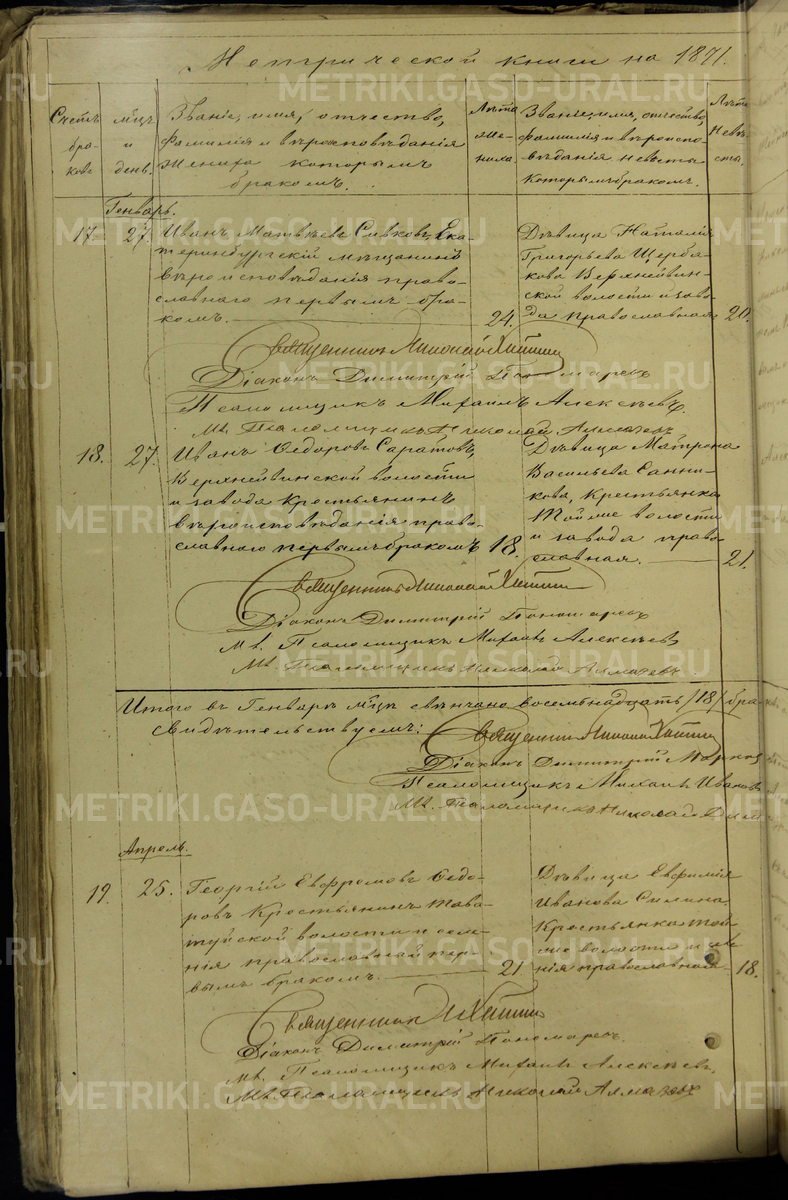 Метрической книги на 1871.
Счетъ бра- ковъ
м̃цъ и день.
Званіе, имя, отчество,
фамилія и вѣроисповѣданія
жениха которымъ
бракомъ.
Лѣта же- ниха.
Званіе, имя, отчество,
фамилія и вѣроиспо-
вѣданія невѣсты
которымъ бракомъ.
Лѣта невѣ- сты.
Генварь.
17. 27.
Иванъ Матвѣевъ Сивковъ, Ека-
теринбургскій мѣщанинъ
вѣроисповѣданія право-
славнаго первымъ бра-
комъ. 24.
Дѣвица Наталія
Григорьева Щерба-
кова Верхнейвин-
ской волости и заво-
да православная 20.
Священникъ Николай
Діаконъ Димитрій Пономаревъ
Псаломщикъ Михаилъ Алексѣевъ.
И. Псаломщика Николай
18. 27.
Иванъ Ѳедоровъ Саратовъ,
Верхнейвинской волости
и завода крестьянинъ
вѣроисповѣданія право-
славнаго первымъ бракомъ 18.
Дѣвица Матрона
Васильева Санни-
кова, крестьянка
той же волости
и завода право-
славная. 21.
Священникъ Николай
Діаконъ Димитрій Пономаревъ
Псаломщикъ Михаилъ Алексѣевъ
Псаломщикъ Николай
Итого въ Генварѣ м̃цѣ свѣнчано восемьнадцать /18/ бра-
Свидѣтельствуемъ:
Священникъ Николай
Діаконъ Димитрій
Псаломщикъ Михаилъ
Псаломщикъ Николай
Апрель.
19. 25.
Георгій Евфромовъ Ѳедо-
ровъ крестьянинъ Тава-
туйской волости и селе-
нія православной пер-
вымъ бракомъ. 21
Дѣвица Евфимія
Иванова Силина
Крестьянка той
же волости и селе-
нія православная 18.
Священникъ Н.
Діаконъ Димитрій Пономаревъ.
Псаломщикъ Михаилъ Алексѣевъ.
Псаломщикъ Николай
METRIKI.GASO-URAL.RU